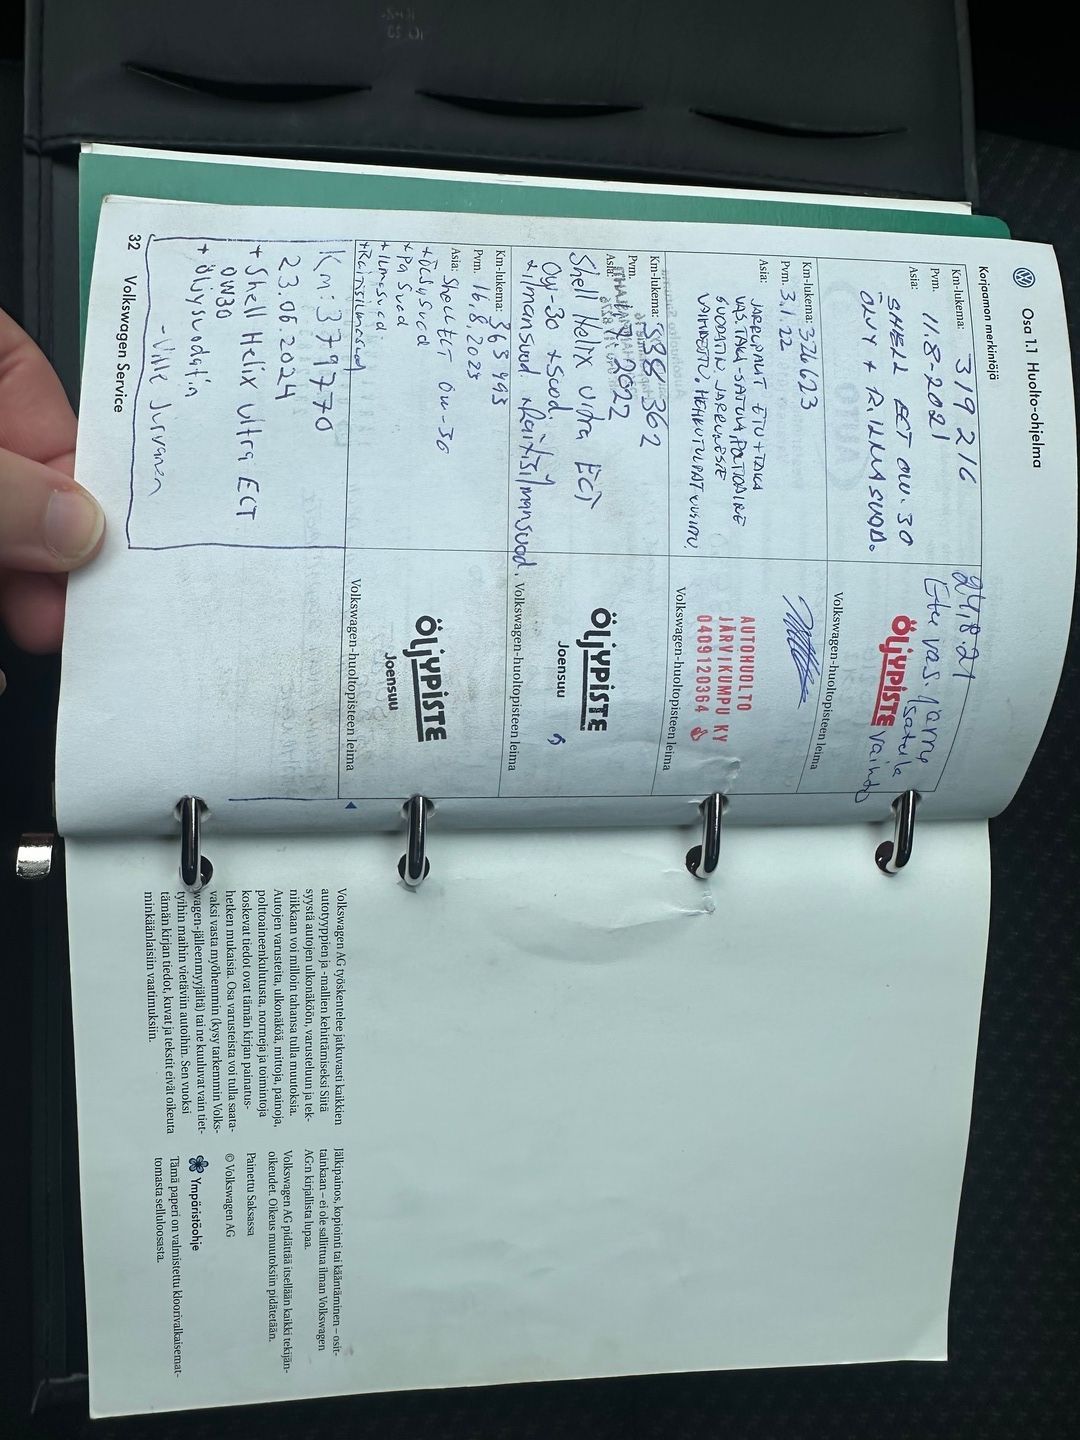 Osa 1.1 Huolto-ohjelma
Korjaamon merkintöjä
Km-lukema: 319 216
Pvm. 11.8-2021
Asia: SHELL ECT 0W.30
ÖLJY +
24.8.21
Etu vas. jarru
satula
vaihto
ÖLJYPISTE
Volkswagen-huoltopisteen leima
Km-lukema: 326623
Pvm. 3.1.22
Asia: JARRUPALAT ETU + TAKA
VAS. TAKA-SATULA, POLTTOAINE
SUODATIN, JARRUNESTE
VAIHDETTU, HEHKUTULPAT UUSITTU.
AUTOHUOLTO
JÄRVIKUMPU KY
0409120364
Volkswagen-huoltopisteen leima
Km-lukema: 338 362
Pvm. 2022
Asia:
Shell Helix Ultra ECT
0w-30 + suod.
+ ilmansuod. + Raitisilmansuod.
ÖLJYPISTE
Joensuu
Volkswagen-huoltopisteen leima
Km-lukema: 365 493
Pvm. 16.8.2023
Asia: Shell ECT 0w-30
+ Öljysuod
+ Pa suod
+ ilmasuod
+ Raitisilmasuod
ÖLJYPISTE
Joensuu
Volkswagen-huoltopisteen leima
Km: 379770
23.06.2024
+ Shell Helix Ultra ECT
0W30
+ Öljysuodatin
- Ville Jurvanen
32 Volkswagen Service
Volkswagen AG työskentelee jatkuvasti kaikkien
autotyyppien ja -mallien kehittämiseksi. Siitä
syystä autojen ulkonäköön, varusteluun ja tek-
niikkaan voi milloin tahansa tulla muutoksia.
Autojen varusteita, ulkonäköä, mittoja, painoja,
polttoaineenkulutusta, normeja ja toimintoja
koskevat tiedot ovat tämän kirjan painatus-
hetken mukaisia. Osa varusteista voi tulla saata-
vaksi vasta myöhemmin (kysy tarkemmin Volks-
wagen-jälleenmyyjältä) tai ne kuuluvat vain tiet-
tyihin maihin vietäviin autoihin. Sen vuoksi
tämän kirjan tiedot, kuvat ja tekstit eivät oikeuta
minkäänlaisiin vaatimuksiin.
Jälkipainos, kopiointi tai kääntäminen – osit-
tainkaan – ei ole sallittua ilman Volkswagen
AG:n kirjallista lupaa.
Volkswagen AG pidättää itsellään kaikki tekijän-
oikeudet. Oikeus muutoksiin pidätetään.
Painettu Saksassa
© Volkswagen AG
Ympäristöohje
Tämä paperi on valmistettu kloorivalkaisemat-
tomasta selluloosasta.